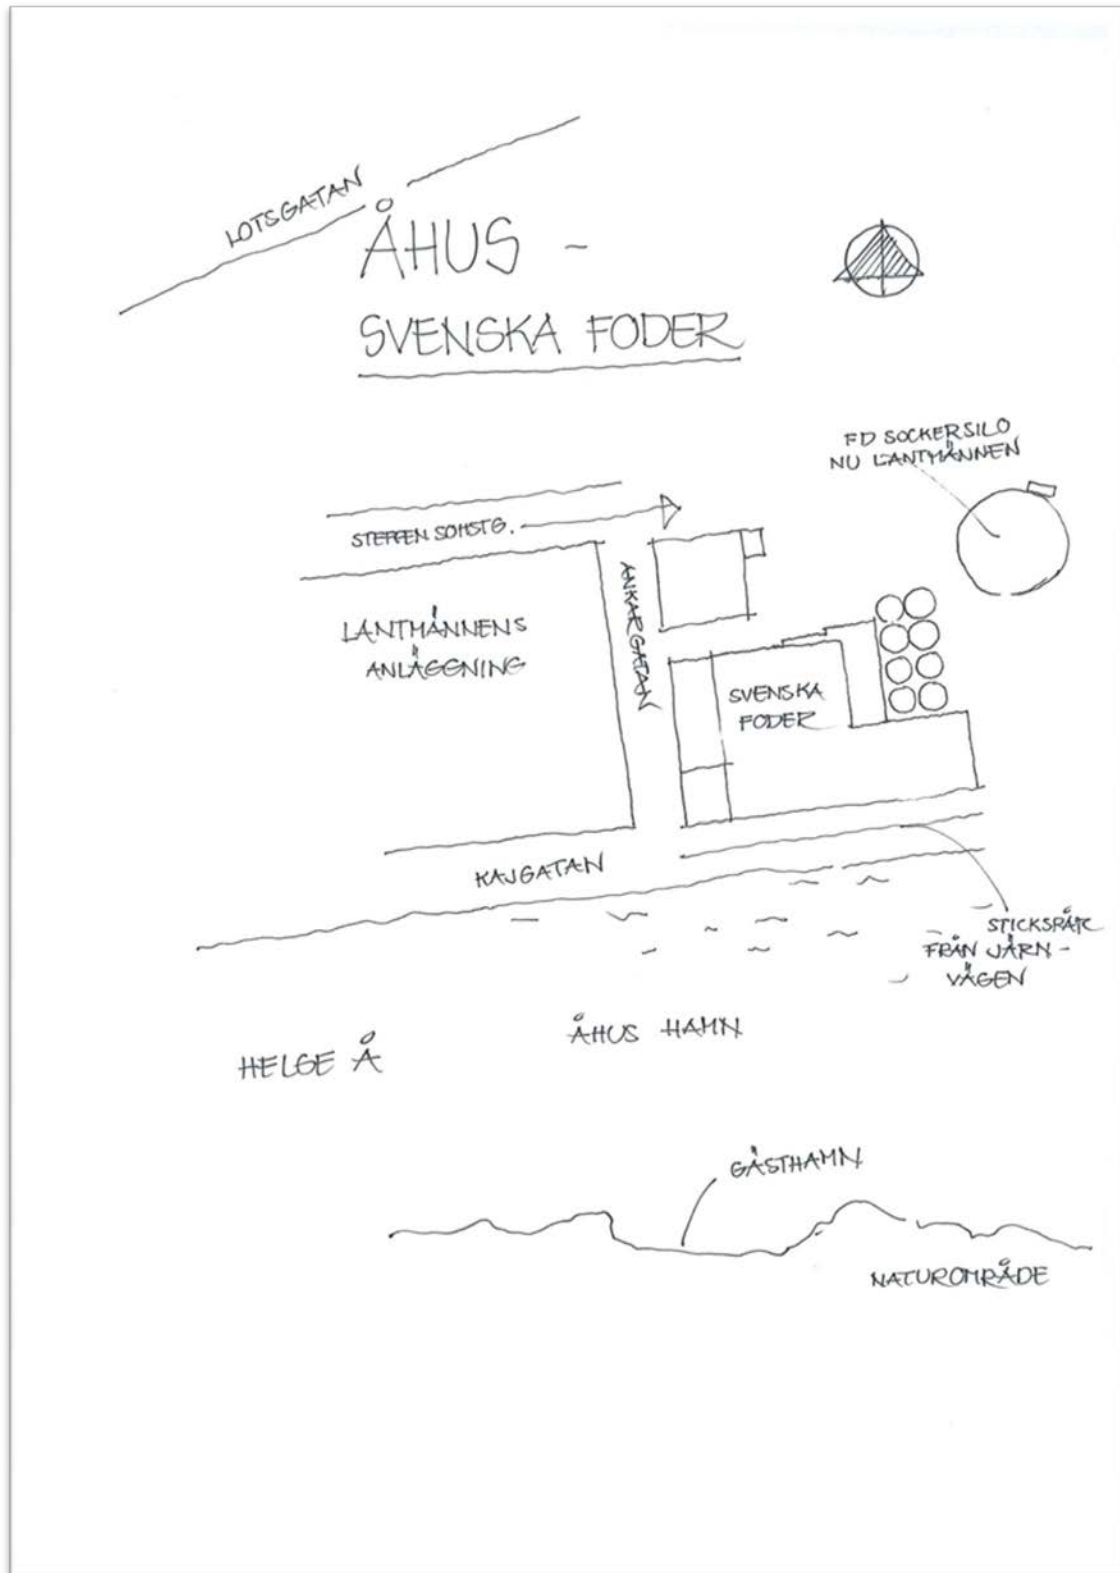 LOTSGATAN
ÅHUS -
SVENSKA FODER
FD SOCKERSILO
NU LANTMÄNNEN
STEFFEN SOHSTG.
ANKARGATAN
LANTMÄNNENS
ANLÄGGNING
SVENSKA
FODER
KAJGATAN
STICKSPÅR
FRÅN JÄRN-
VÄGEN
ÅHUS HAMN
HELGE Å
GÄSTHAMN
NATUROMRÅDE